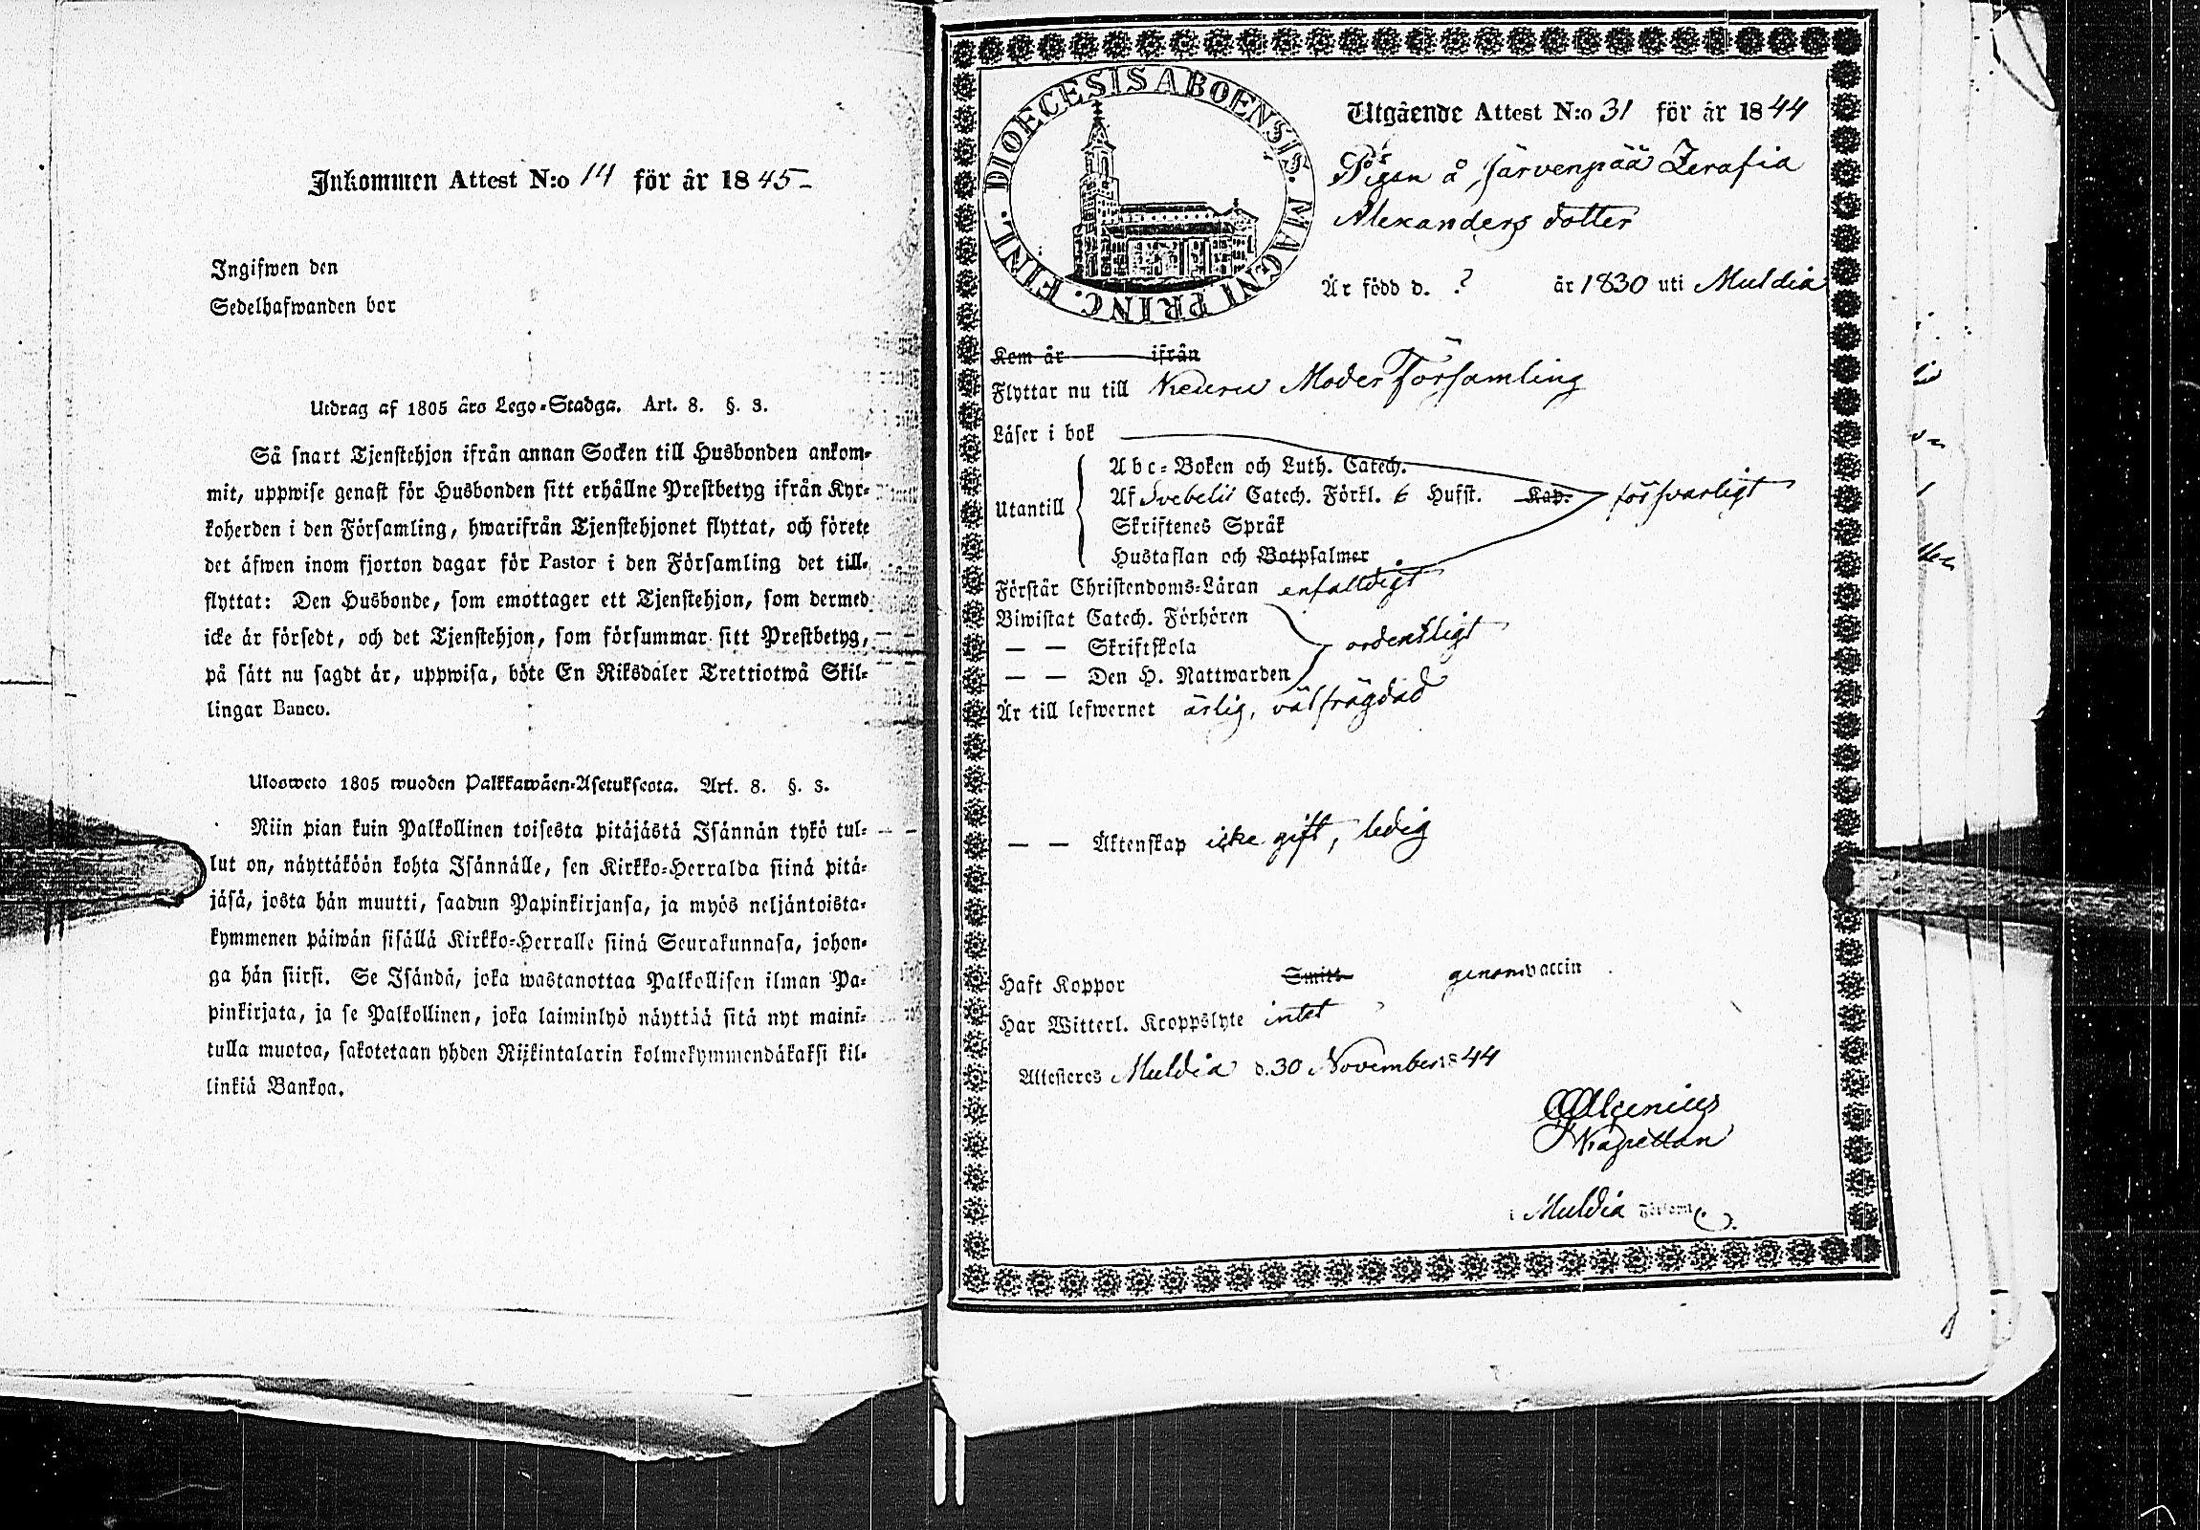 Inkommen Attest N:o 14 för år 1845-
Ingifwen den
Sedelhafwanden bor
Utdrag af 1805 års Lego-Stadga. Art. 8. §. 3.
Så snart Tjenstehjon ifrån annan Socken till Husbonden ankom-
mit, uppwise genast för Husbonden sitt erhållne Prestbetyg ifrån Kyr-
koherden i den Församling, hwarifrån Tjenstehjonet flyttat, och förete
det äfwen inom fjorton dagar för Pastor i den Församling det till-
flyttat: Den Husbonde, som emottager ett Tjenstehjon, som dermed
icke är försedt, och det Tjenstehjon, som försummar sitt Prestbetyg,
på sätt nu sagdt är, uppwisa, böte En Riksdaler Trettiotwå Skil-
lingar Banco.
Ulosweto 1805 wuoden Palkkawäen-Asetuksesta. Art. 8. §. 3.
Niin pian kuin Palkollinen toisesta pitäjästä Isännän tykö tul-
lut on, näyttäköön kohta Isännälle, sen Kirkko-Herralda siinä pitä-
jäsä, josta hän muutti, saadun Papinkirjansa, ja myös neljäntoista-
kymmenen päiwän sisällä Kirkko-Herralle siinä Seurakunnasa, johon-
ga hän siirsi. Se Isändä, joka wastanottaa Palkollisen ilman Pa-
pinkirjata, ja se Palkollinen, joka laiminlyö näyttää sitä nyt maini-
tulla muotoa, sakotetaan yhden Rijkintalarin kolmekymmendäkaksi kil-
linkiä Bankoa.
DIOECESIS ABOENSIS. MAGNI PRINC. FINL.
Utgående Attest N:o 31 för år 1844
Pigan å Järvenpää Zerafia
Alexanders dotter
Är född d. ? år 1830 uti Muldia
Kom år ifrån
Flyttar nu till Keuru Moder Församling
Läser i bok
Utantill
Abc-Boken och Luth. Catech.
Af Svebelii Catech. Förkl. 6 Hufst. Kap. försvarligt
Skriftenes Språk
Hustaflan och Botpsalmer
Förstår Christendoms-Läran enfaldigt
Biwistat Catech. Förhören
— — Skriftskola ordentligt
— — Den H. Nattwarden
Är till lefwernet ärlig, välfrägdad
— — Äktenskap icke gift, ledig
Haft Koppor Smitt genom vaccin
Har Witterl. Kroppslyte intet
Attesteres Muldia d. 30 November 1844
Algenius
i Muldia Församl.